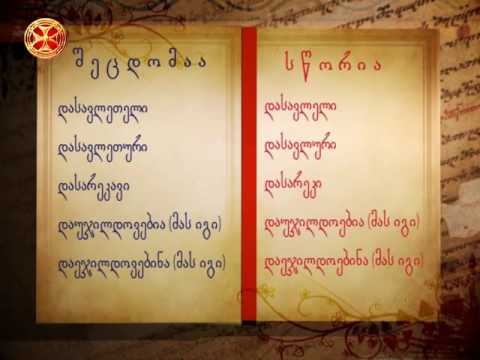 შეცდომაა
დასავლეთელი
დასავლეთური
დასარეკავი
დაუჯილდოვებია (მას იგი)
დაეჯილდოვებინა (მას იგი)
სწორია
დასავლელი
დასავლური
დასარეკი
დაუჯილდოებია (მას იგი)
დაეჯილდოებინა (მას იგი)